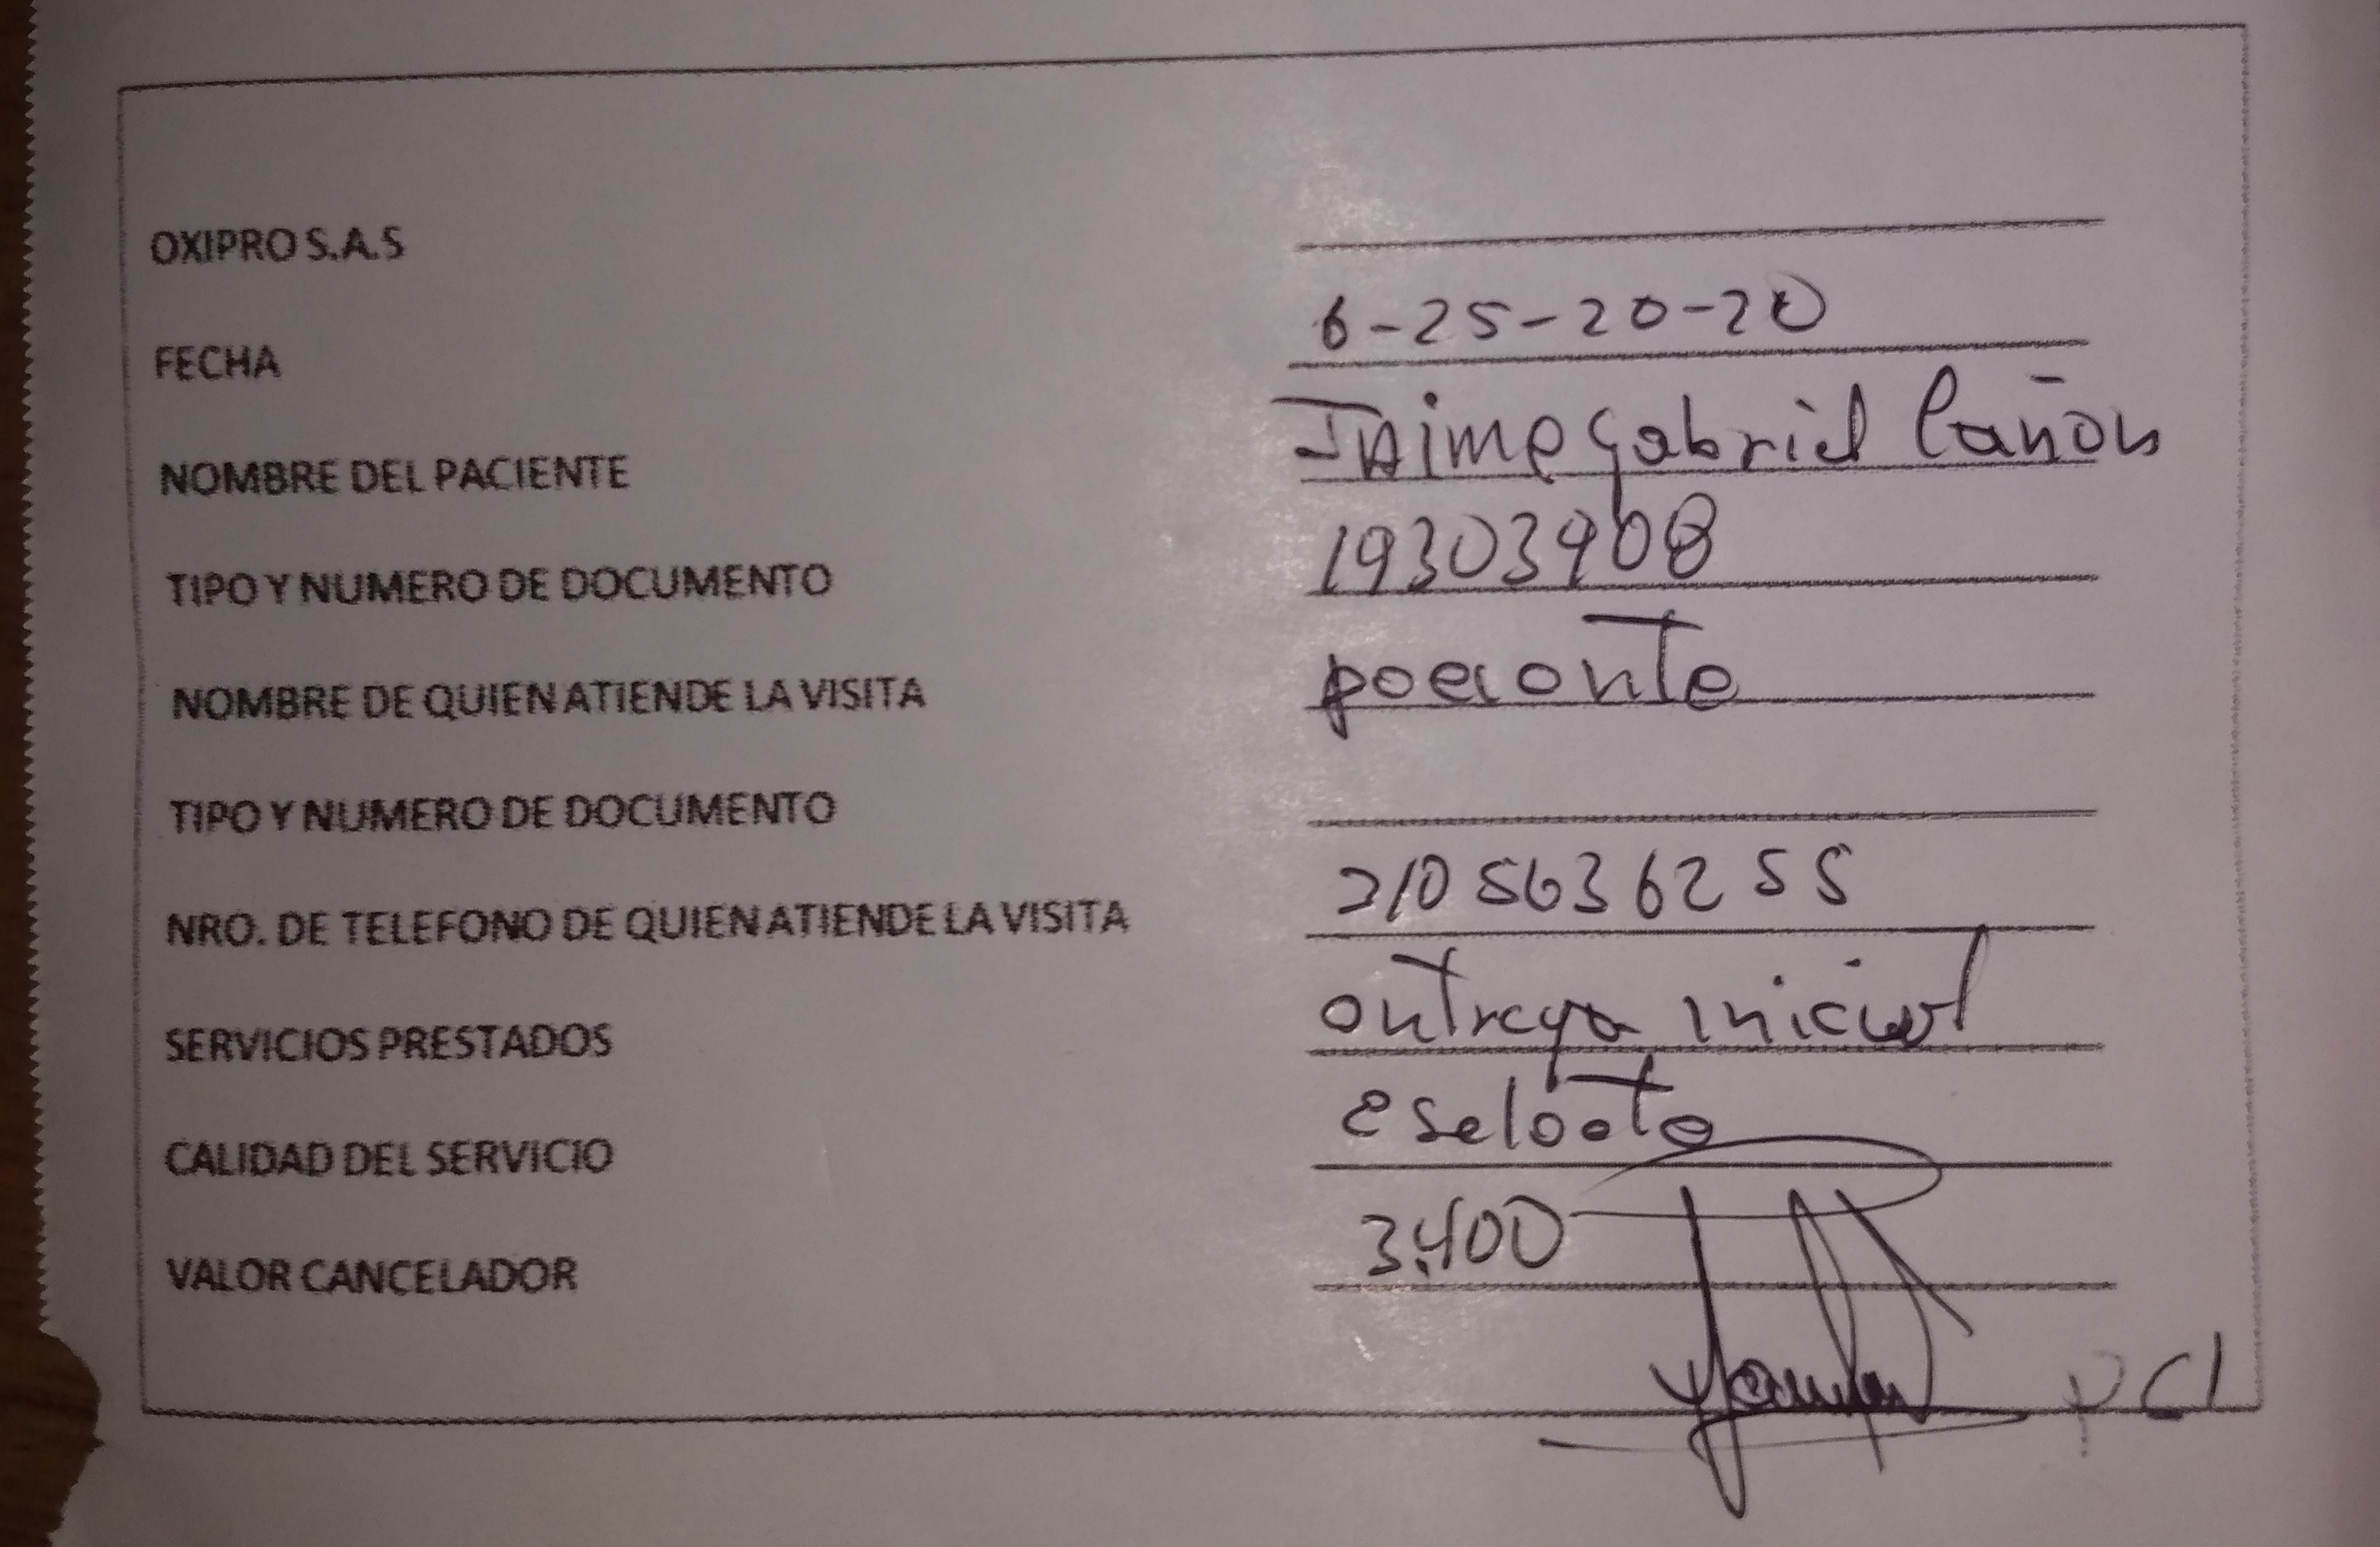 OXIPRO S.A.S
FECHA 6-25-20-20
NOMBRE DEL PACIENTE Jaime Gabriel Cañon
TIPO Y NUMERO DE DOCUMENTO 19303908
NOMBRE DE QUIEN ATIENDE LA VISITA paciente
TIPO Y NUMERO DE DOCUMENTO
NRO. DE TELEFONO DE QUIEN ATIENDE LA VISITA 3105636255
SERVICIOS PRESTADOS entrega inicial
CALIDAD DEL SERVICIO
VALOR CANCELADOR 3.400